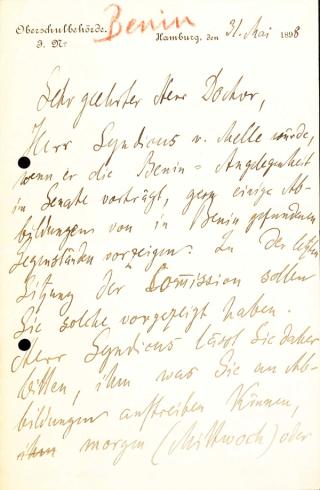 Benin
Oberschulbehörde.
J. No
Hamburg, den 31. Mai 1898
Sehr geehrter Herr Doctor,
Herr Syndicus v. Melle würde,
wenn er die Benin-Angelegenheit
im Senate vorträgt, gern einige Ab-
bildungen von in Benin gefundenen
Gegenständen vorzeigen. In der letzten
Sitzung der Commission sollen
Sie solche vorgezeigt haben.
Herr Syndicus lässt Sie daher
bitten, ihm was Sie an Ab-
bildungen auftreiben können,
ihm morgen (Mittwoch) oder